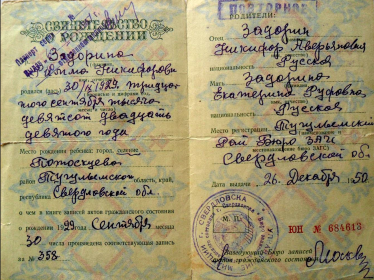 СВИДЕТЕЛЬСТВО
О РОЖДЕНИИ
Задорина
Никифоровн
родился (лась) 30/IX 1929, тридцат
ого сентября тысяча
девятсот двадцать
девятого года
Место рождения ребенка: город, селение
Тугулымском
область, край,
Свердловской обл.
о чем в книге записей актов гражданского состояния
о рождении 1929 года Сентября месяца
30 числа произведена соответствующая запись
за № 358
ПОВТОРНОЕ
РОДИТЕЛИ:
Задорин
Отец
Никифор Аверьянович
национальность Русской
Мать Задорина
Екатерина Руфовна
национальность Русская
Место регистрации Тугулымский
Рай Бюро ЗАГС
Свердловской обл
Дата выдачи 26 Декабря 1950.
М. П.
ЮН № 684613
Заведующий Бюро записей
актов гражданского состояния